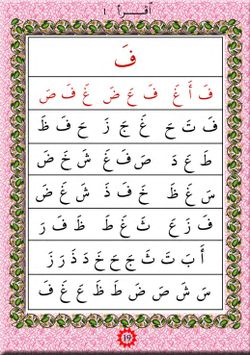 اقرأ ١
فَ
فَ أَ غَ فَ عَ ضَ غَ فَ صَ
فَ تَ حَ غَ جَ زَ حَ فَ ظَ
طَ عَ دَ صَ فَ غَ شَ خَ ضَ
سَ غَ ظَ خَ فَ ذَ شَ غَ ضَ
فَ زَ عَ ثَ غَ طَ ظَ فَ رَ
أَ بَ تَ ثَ جَ حَ خَ دَ ذَ رَ زَ
سَ شَ صَ ضَ طَ ظَ عَ غَ فَ
19